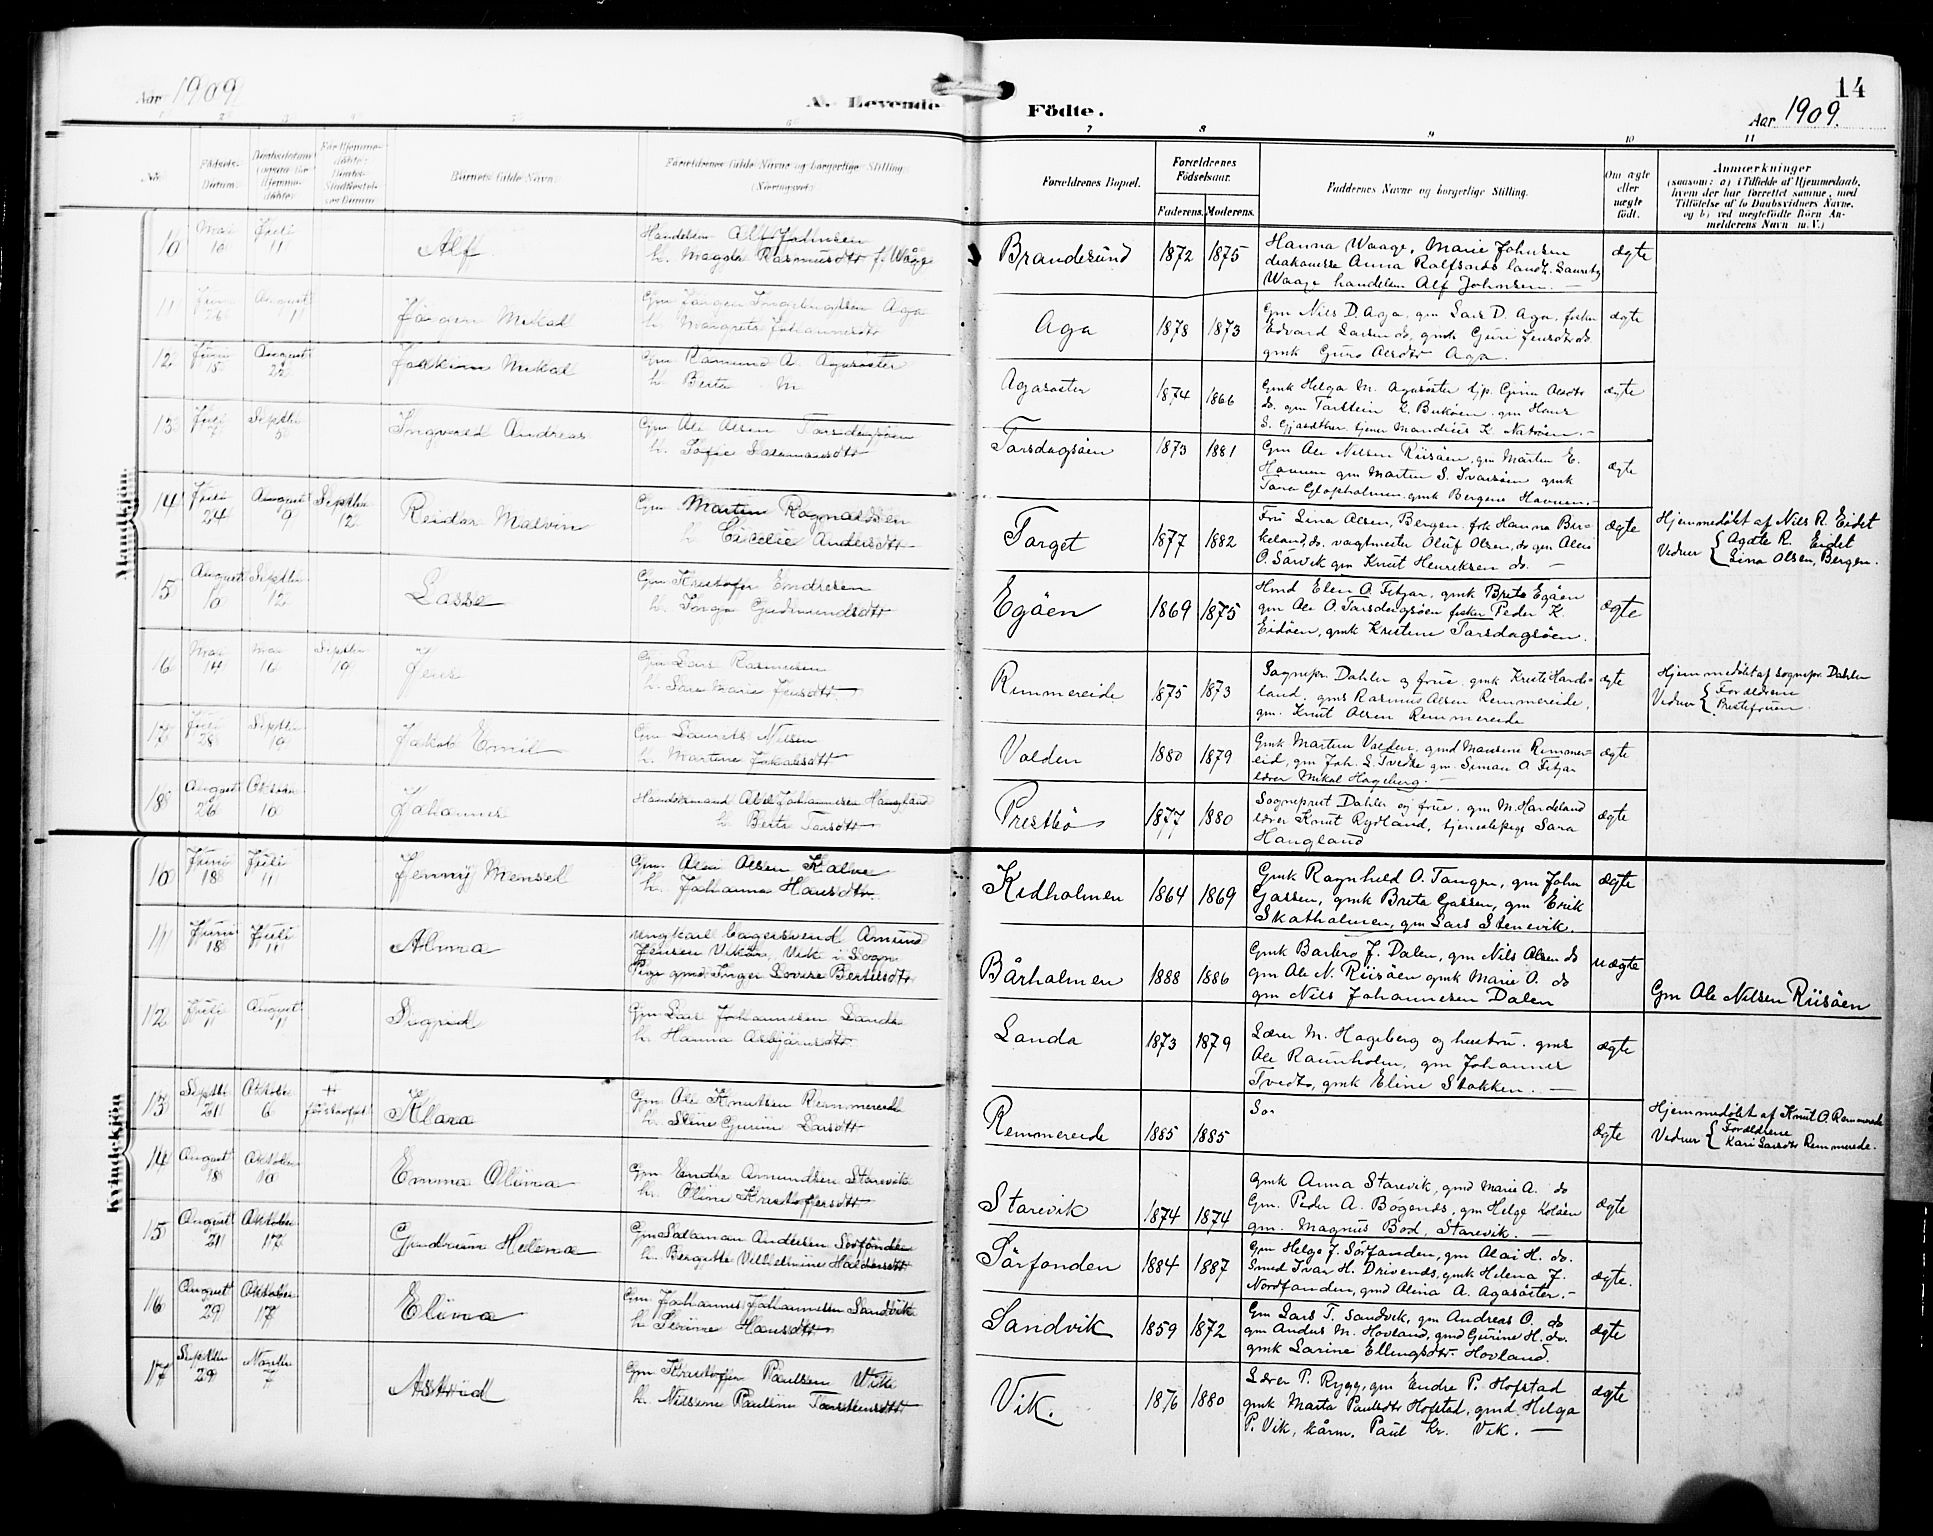 Aar 1909
A. Levende
Födte.
14
Aar 1909.
No.
Födsels-Datum.
Barnets fulde Navn.
Forældrenes fulde Navne og borgerlige Stilling
(Næringsvei)
Forældrenes Bopæl.
Forældrenes Födselsaar.
Faderens. Moderens.
Faddernes Navne og borgerlige Stilling.
Om ægte eller uægte födt.
Anmærkninger
(saasom: a) i Tilfælde af Hjemmedaab, hvem der har forrettet samme, med Tilföielse af to Daabsvidners Navne, og b) ved uægtefödte Börn Anmelderens Navn m. V.)
Mandkjön.
10 Mai 10 Juli 11 Alf Handelsm Alf Johnsen
h. Magda Rasmusdtr f. Waage
Brandesund 1872 1875 Hanna Waage, Marie Johnsen
diakonisse Anna Rolfsnes landh. Lauritz
Waage handelsm Alf Johnsen. — ægte
11 Juni 26 August 1 Jörgen Mikal Gm Jörgen Ingebrigtsen Aga
h. Margrete Johannesdtr
Aga 1878 1873 Gm Nils D. Aga, gm Lars D. Aga, fisker
Edvard Larsen do, gmk Guri Jensdtr do.
gmk Guro Olsdtr Aga. ægte
12 Juni 15 August 22 Joakim Mikal Gm Ramund A. Agasöster
h. Berta M.
Agasöster 1874 1866 Gmk Helga M. Agasöster tjp. Guru Olsdtr
do. gm Torstein L. Buköen gm Hans
S. tjener Mandius K. Natöen. — ægte
13 Juli Septbr 5 Ingvald Andreas Gm Ole Olsen Torsdagsöen
h. Sofie Salamonsdtr
Torsdagsöen 1873 1881 Gm Ole Nilsen Riisöen, gm Morten E.
Havnen gm Morten S. Ivarsöen gmk
Tora Glopholmen gmk Bergene Havnen. — ægte
14 Juli 24 August 9 Septbr 12 Reidar Malvin Gm Martin Ragnaldsen
h. Cicilie Andersdtr
Torget 1877 1882 Fru Lina Olsen, Bergen, frk Hanna Birkeland,
do. vagtmester Oluf Olsen, do gm Olai
O. Sörvik gm Knut Henriksen do. — ægte
Hjemmedöbt af Nils R. Eidet
Vidner { Agate R. Eidet
Lina Olsen, Bergen.
15 August 10 Septbr 12 Lasse Gm Kristofer Endresen
h. Inga Gudmundsdtr
Egöen 1869 1875 Hmd Elen O. Fitjar, gmk Brita Egöen
gm Ole O. Torsdagsöen fisker Peder K.
Eidöen, gmk Kristene Torsdagsöen. ægte
16 Mai 14 Mai 16 Septbr 19 Jens Gm Lars Rasmusen
h. Sara Marie Jensdtr
Rimmereide 1875 1873 Sognepr. Dahler og frue, gmk Kristi Hardeland,
gms Rasmus Olsen Remmereide,
gm. Knut Olsen Remmereide ægte
Hjemmedöbt af sognepr. Dahler
Vidner { Forældrene
Prestefruen.
17 Juli 28 Septbr 19 Jakob Emil Gm Laurits Nilsen
h. Martine Jakobsdtr
Valden 1880 1879 Gmk Martina Valden, gmd Mansine Remmereid,
gm Joh. S. Tvedte gm. Simon O. Fitjar
lærer Mikal Hageberg. — ægte
18 August 26 Oktober 10 Johannes Handelsmand Abel Johannesen Haugland
h. Berta Torsdtr
Prestbö 1877 1880 Sogneprest Dahler og frue, gm M. Hardeland
lærer Knut Rydland, tjenestepige Sara
Haugland ægte
Kvindekjön
10 Juni 18 Juli 11 Jenny Mensel Gm. Olai Olsen Kalve
h. Johanna Hansdtr.
Kidholmen 1864 1869 Gmk Ragnhild O. Tangen, gm John
Gåssen, gmk Brita Gåssen, gm Erik
Skatholmen, gm Lars Stenevik. ægte
11 Juni 18 Juli 11 Alma ungkarl bagersvend Amund
Jensen Vikör, Vik i Sogn
Pige gmd Inger Lovise Bertilsdtr
Bårholmen 1888 1886 Gmk Barbro J. Dalen, gm Nils Olsen do
gm Ole N. Riisöen gmk Marie O. do
gm Nils Johannesen Dalen uægte
Gm Ole Nilsen Riisöen
12 Juli 11 August 11 Sigrid Gm Lars Johannesen Landa
h. Hanna Asbjörnsdtr
Landa 1873 1879 Lærer M. Hageberg og hustru. gms
Ole Raunholm, gm Johannes
Tvedto, gmk Eline Stokken. — ægte
13 Septbr 21 Oktober 6 Klara Gm Ole Knutsen Remmereide
h. Stine Gurine Larsdtr
Remmereide 1885 1885 ægte
Hjemmedöbt af Knut O. Remmereide
Vidner { Forældrene
Kari Larsdtr Remmereide.
14 August 18 Oktober 10 Emma Olina Gm Endre Amundsen Starevik
h. Oline Kristofersdtr
Starevik 1874 1874 Gmk Anna Starevik, gmd Marie A. do
Gm. Peder A. Bögends, gm Helge Koløen
gm. Magnus Bod, Starevik. — ægte
15 August 21 Oktober 17 Gudrun Helena Gm Salamon Andersen Sörfonden
h. Bergitte Vilhelmine Haldorsdtr
Sörfonden 1884 1887 Gm Helge J. Sörfonden, gm Olai H. do.
Smed Ivar H. Drivenes, gmk Helena J.
Nordfonden, gmd Olina A. Agasöster. — ægte.
16 August 29 Oktober 17 Elina Gm. Johannes Johannesen Sandvik
h. Serine Hansdtr
Sandvik 1859 1872 Gm Lars T. Sandvik, gm Andreas O. do
gm Anders M. Hovland, gmd Gurine H. do.
gmk Larine Ellingsdtr Hovland. ægte
17 Septbr 29 Novbr 7 Astrid Gm Kristoffer Paulsen Vik
h. Nilsine Pauline Torsteinsdtr
Vik. 1876 1880 Lærer P. Rygg, gm Endre P. Hofstad
gmk Marta Paulsdtr Hofstad, gmd Helga
P. Vik, kårm. Paul Kr. Vik. — ægte